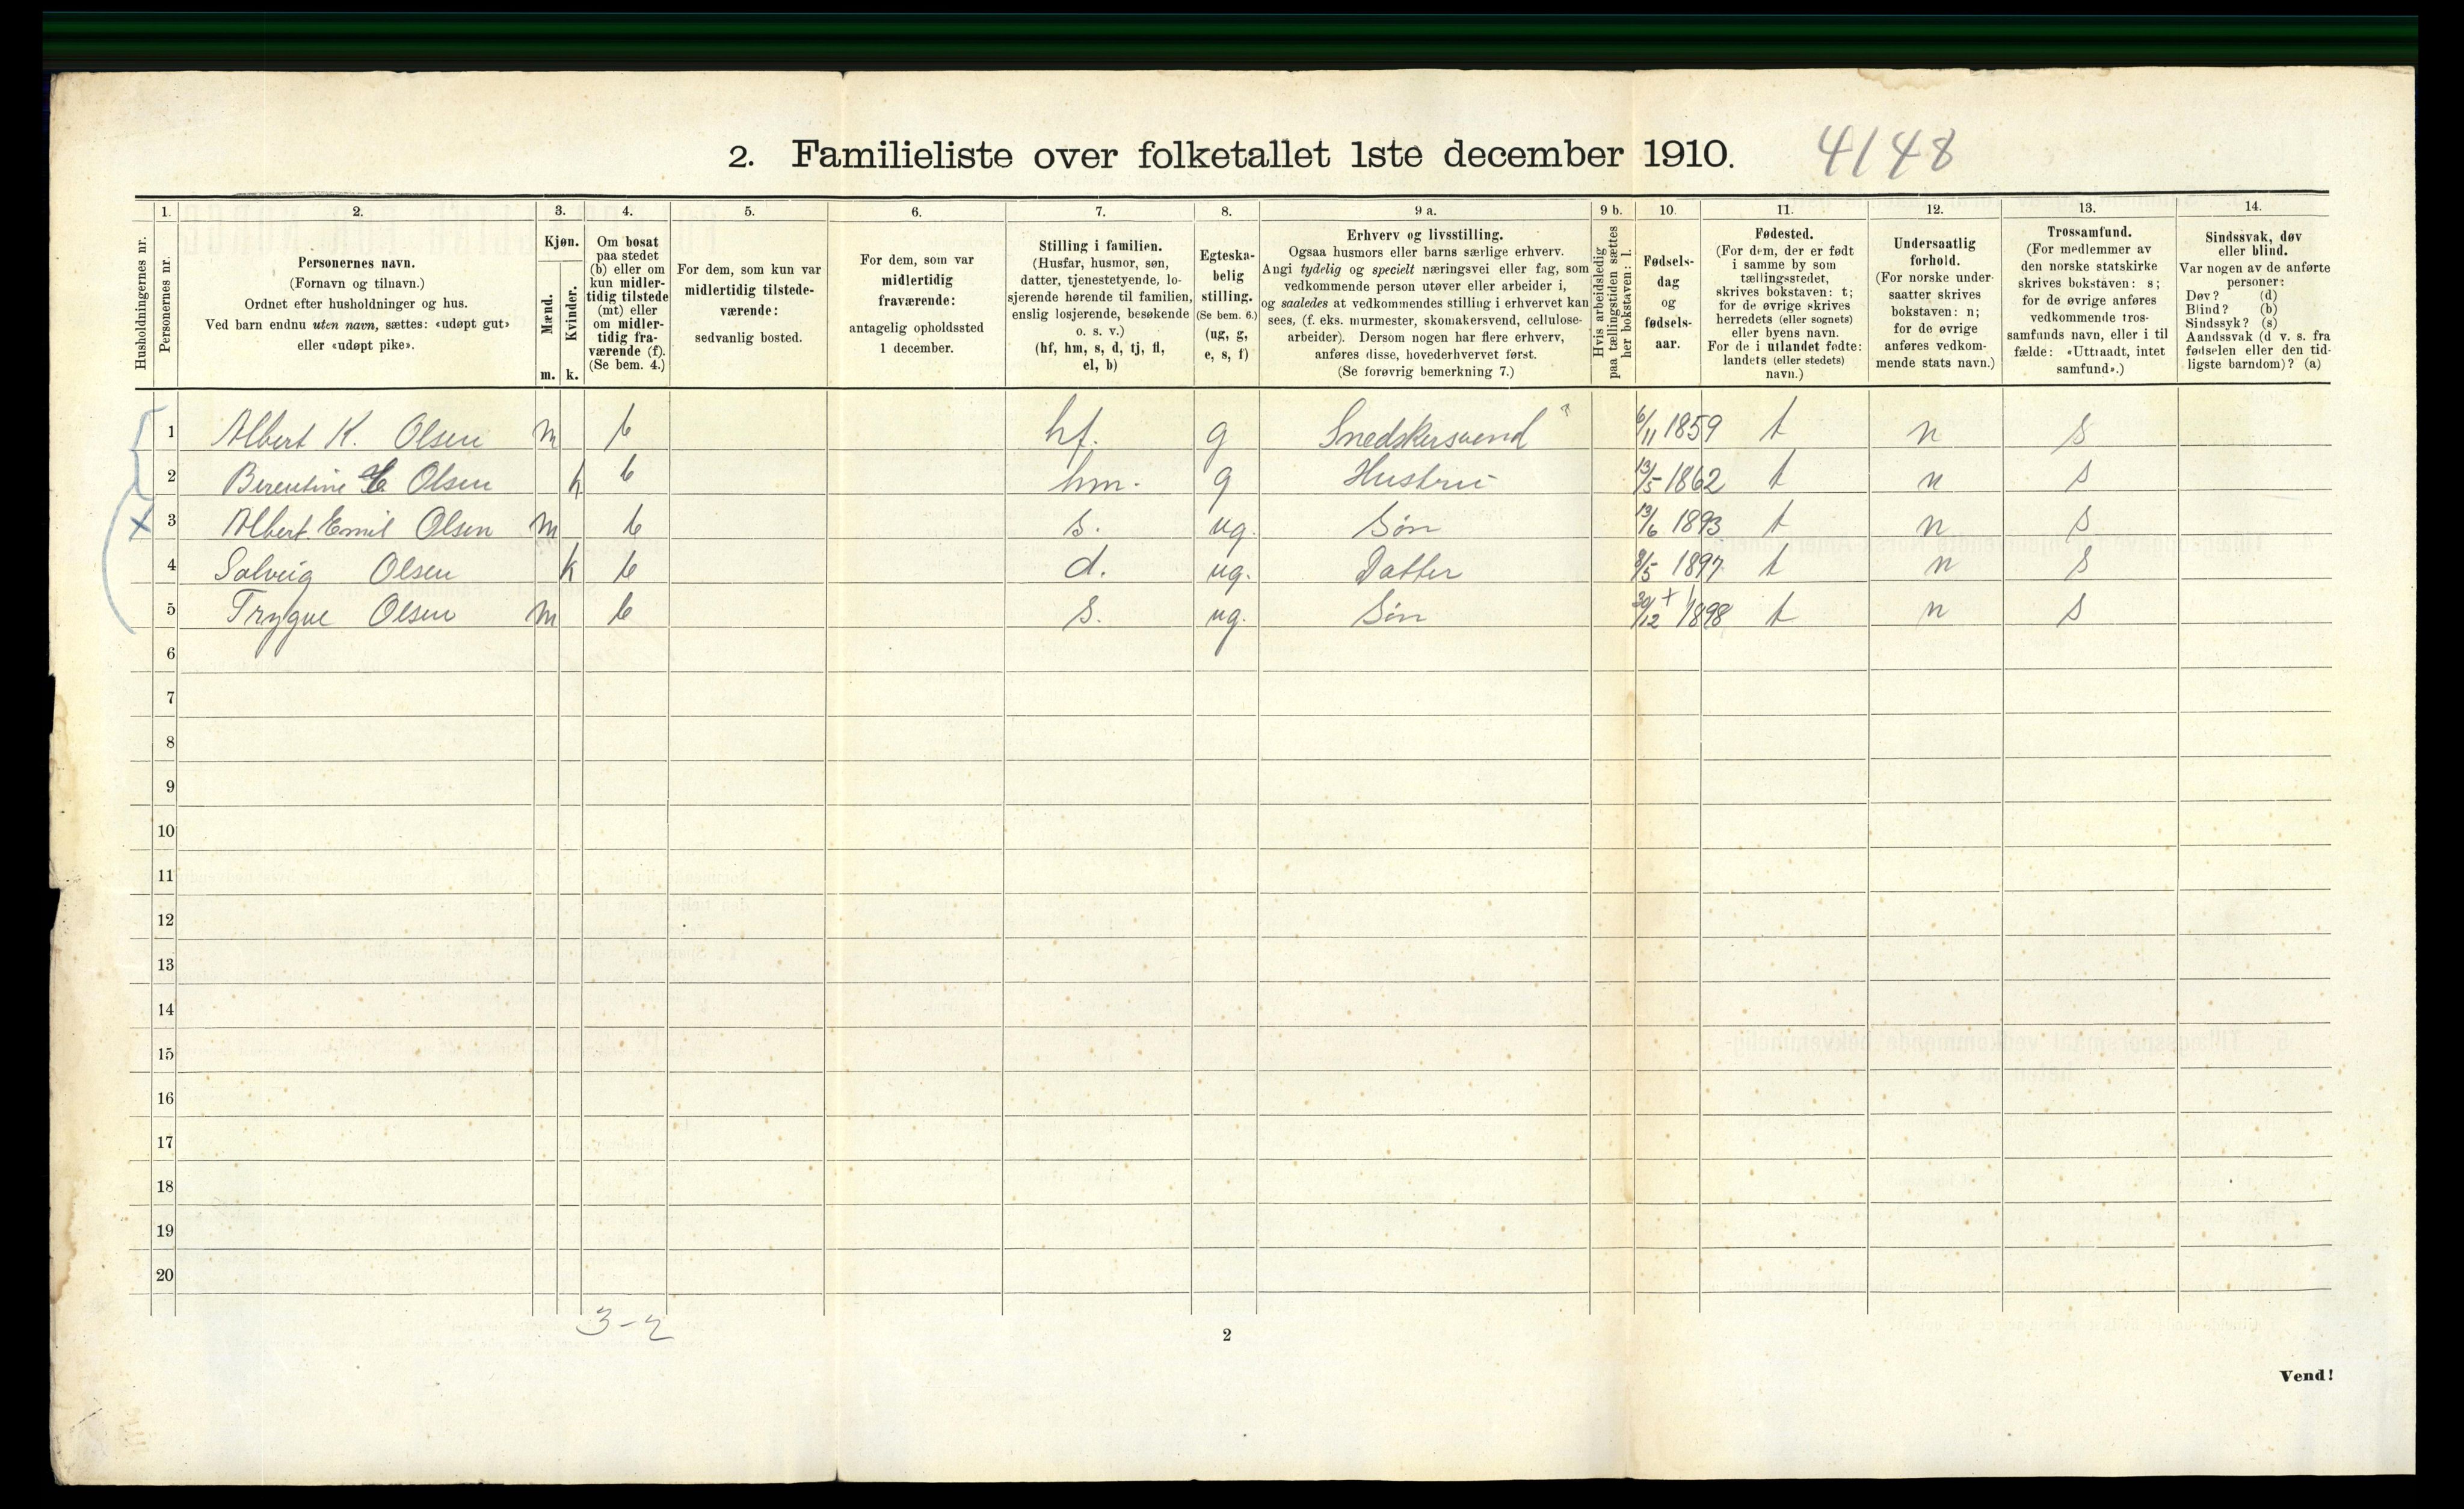 2. Familieliste over folketallet 1ste december 1910. 4148
Husholdningernes nr.
1.
Personernes nr.
2.
Personernes navn.
(Fornavn og tilnavn.)
Ordnet efter husholdninger og hus.
Ved barn endnu uten navn, sættes: «udøpt gut»
eller «udøpt pike».
3.
Kjøn.
Mænd.
m.
Kvinder.
k.
4.
Om bosat
paa stedet
(b) eller om
kun midler-
tidig tilstede
(mt) eller
om midler-
tidig fra-
værende (f).
(Se bem. 4.)
5.
For dem, som kun var
midlertidig tilstede-
værende:
sedvanlig bosted.
6.
For dem, som var
midlertidig
fraværende:
antagelig opholdssted
1 december.
7.
Stilling i familien.
(Husfar, husmor, søn,
datter, tjenestetyende, lo-
sjerende hørende til familien,
enslig losjerende, besøkende
o. s. v.)
(hf, hm, s, d, tj, fl,
el, b)
8.
Egteska-
belig
stilling.
(Se bem. 6.)
(ug, g,
e, s, f)
9 a.
Erhverv og livsstilling.
Ogsaa husmors eller barns særlige erhverv.
Angi tydelig og specielt næringsvei eller fag, som
vedkommende person utøver eller arbeider i,
og saaledes at vedkommendes stilling i erhvervet kan
sees, (f. eks. murmester, skomakersvend, cellulose-
arbeider). Dersom nogen har flere erhverv,
anføres disse, hovederhvervet først.
(Se forøvrig bemerkning 7.)
9 b.
Hvis arbeidsledig
paa tællingstiden sættes
her bokstaven: l.
10.
Fødsels-
dag
og
fødsels-
aar.
11.
Fødested.
(For dem, der er født
i samme by som
tællingsstedet,
skrives bokstaven: t;
for de øvrige skrives
herredets (eller sognets)
eller byens navn.
For de i utlandet fødte:
landets (eller stedets)
navn.)
12.
Undersaatlig
forhold.
(For norske under-
saatter skrives
bokstaven: n;
for de øvrige
anføres vedkom-
mende stats navn.)
13.
Trossamfund.
(For medlemmer av
den norske statskirke
skrives bokstaven: s;
for de øvrige anføres
vedkommende tros-
samfunds navn, eller i til
fælde: «Uttraadt, intet
samfund».)
14.
Sindssvak, døv
eller blind.
Var nogen av de anførte
personer:
Døv? (d)
Blind? (b)
Sindssyk? (s)
Aandssvak (d v. s. fra
fødselen eller den tid-
ligste barndom)? (a)
1 Albert K. Olsen m b hf. g Snedskersvend 6/11 1859 t n s
2 Berentine Olsen k b hm. g Hustru 13/5 1862 t n s
3 Albert Emil Olsen m b s. ug. Søn 13/6 1893 t n s
4 Solveig Olsen k b d. ug. Datter 8/5 1897 t n s
5 Trygve Olsen m b s. ug. Søn 30/12 1898 t n s
6
7
8
9
10
11
12
13
14
15
16
17
18
19
20
3-2
2
Vend!